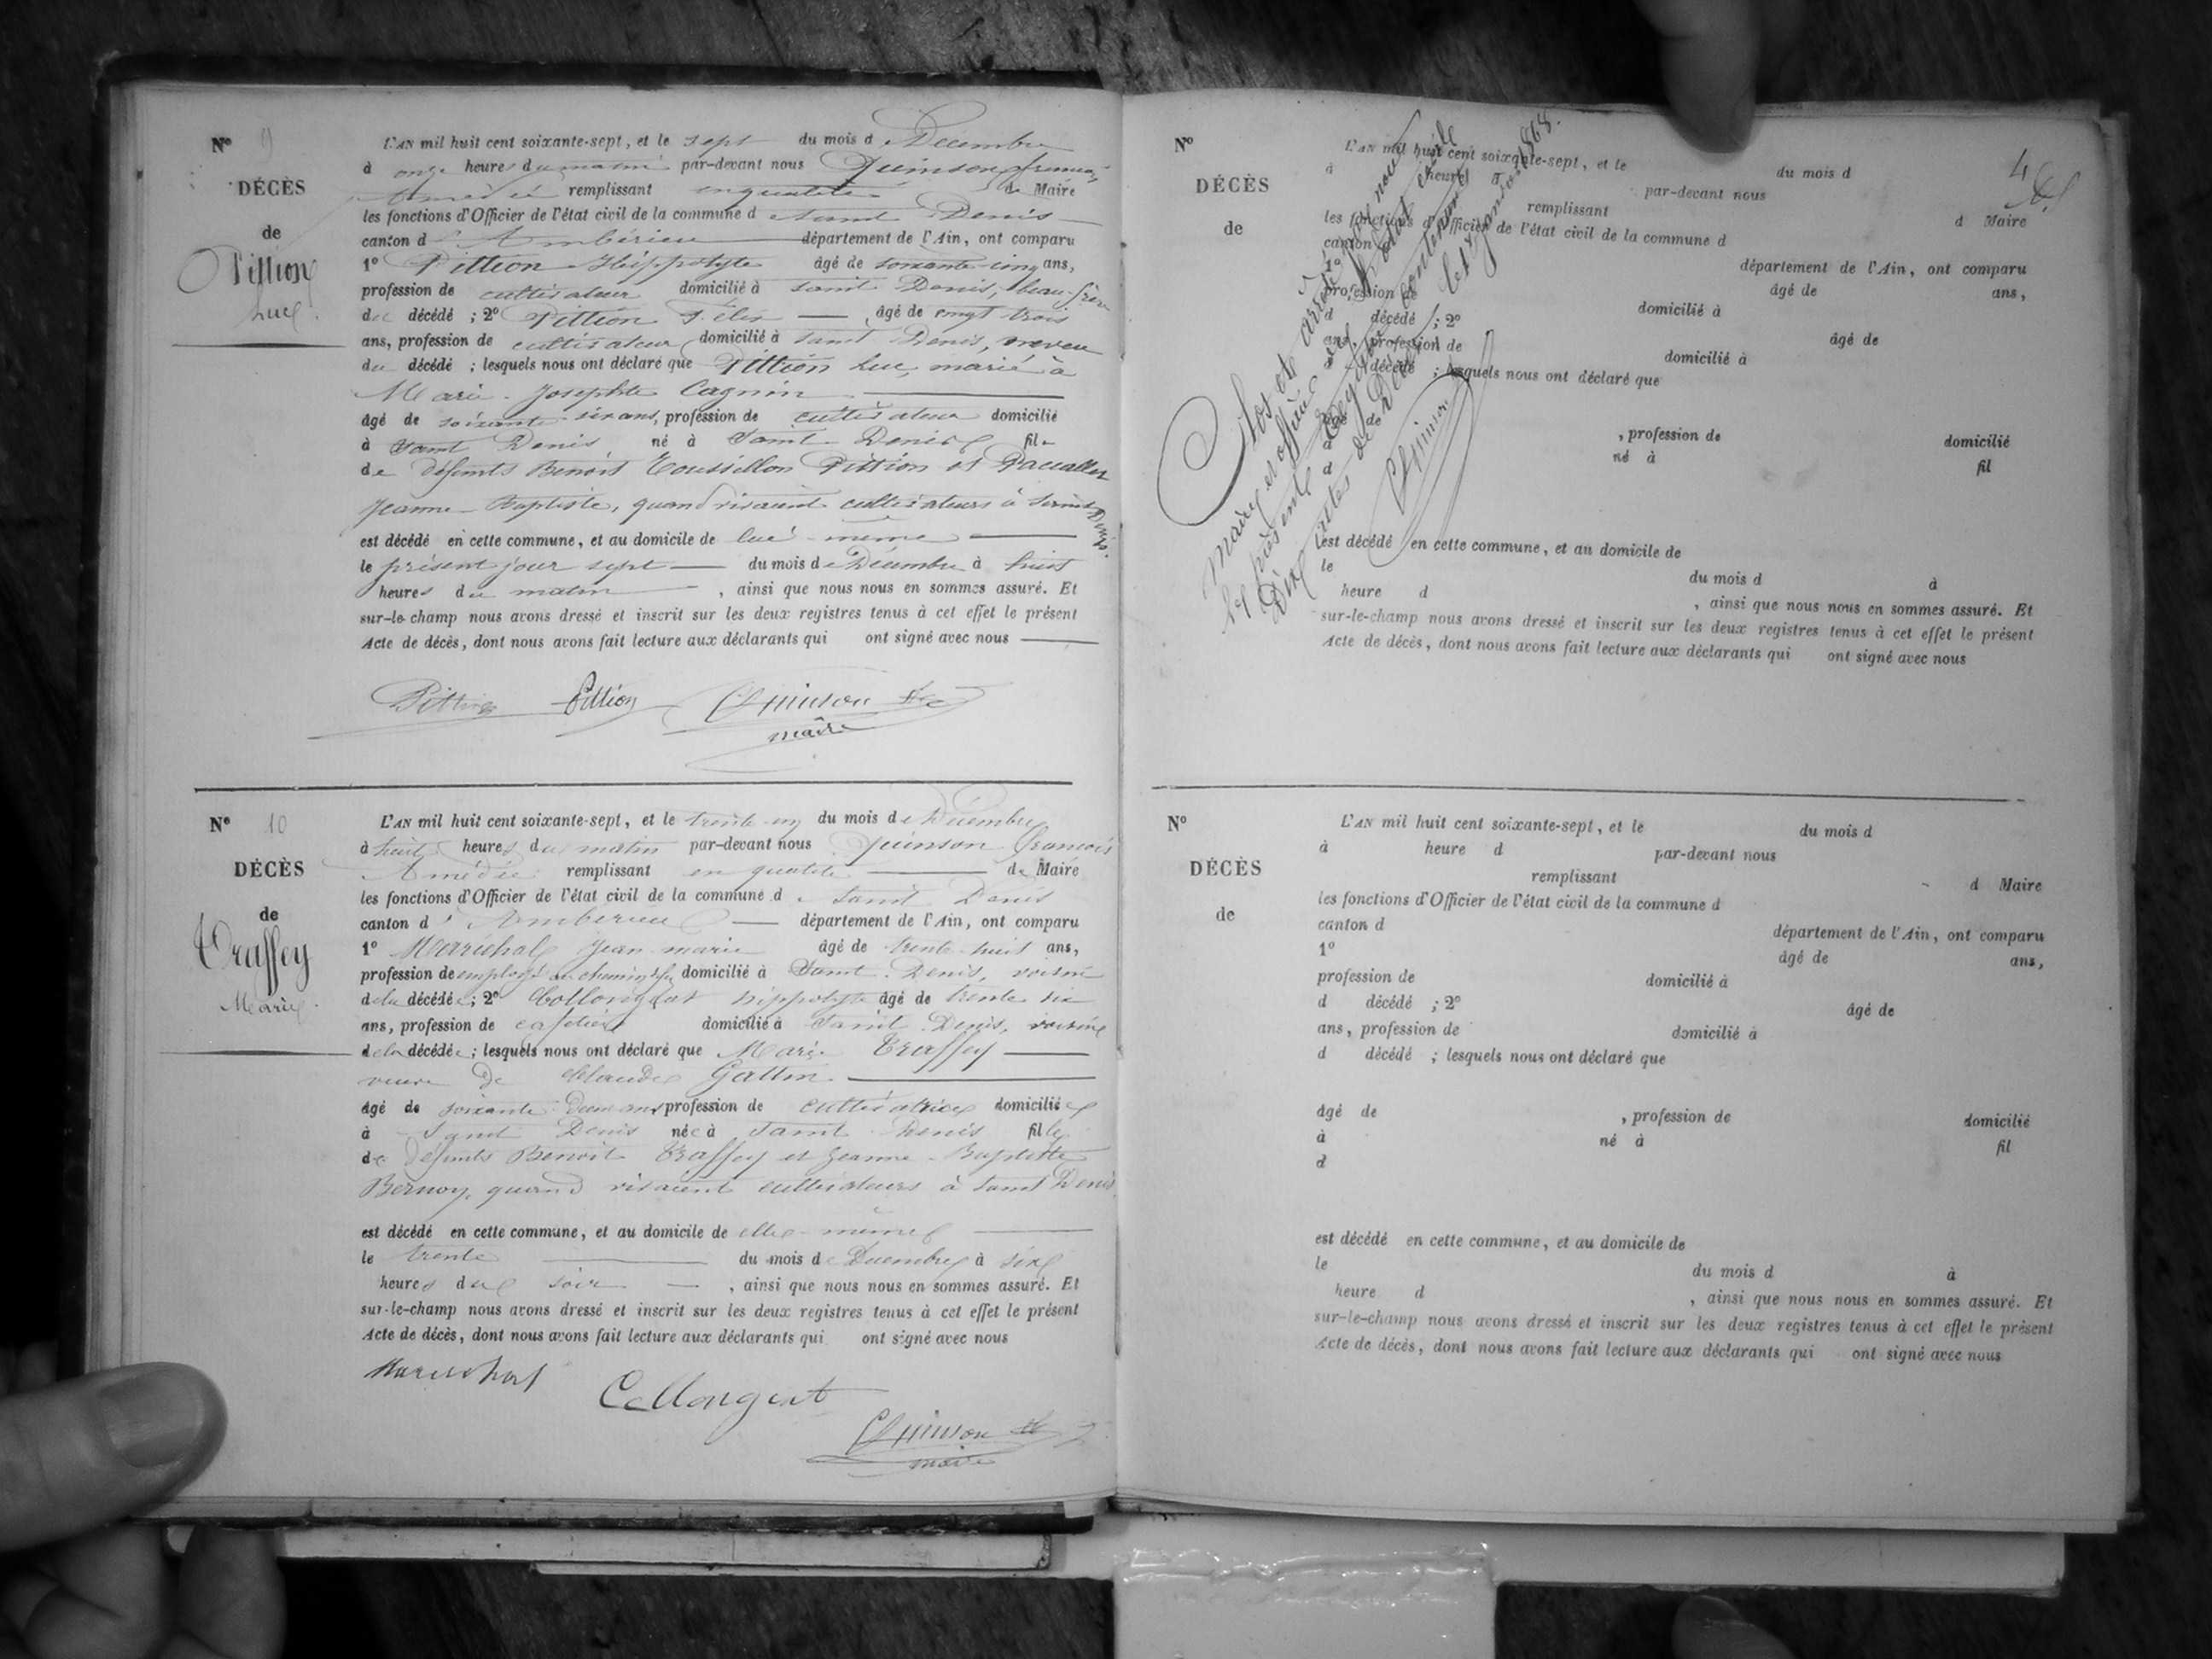 N° 9
DÉCÈS
de
Pittion
Luc.
L'AN mil huit cent soixante-sept, et le sept du mois de Décembre
à onze heures du matin par-devant nous Quinson françois
Amédée remplissant en qualité de Maire
les fonctions d'Officier de l'état civil de la commune de Saint Denis
canton d'Ambérieu département de l'Ain, ont comparu
1° Pittion Hippolyte âgé de soixante-cinq ans,
profession de cultivateur domicilié à saint Denis, beau-frère
du décédé ; 2° Pittion Félix âgé de vingt trois
ans, profession de cultivateur domicilié à saint Denis, neveu
du décédé ; lesquels nous ont déclaré que Pittion Luc, marié à
Marie-Josephte Cagnin
âgé de soixante-six ans, profession de cultivateur domicilié
à Saint Denis né à Saint-Denis fils
de défunts Benoît Pittion et
Jeanne-Baptiste, quand vivaient cultivateurs à Saint Denis.
est décédé en cette commune, et au domicile de lui-même
le présent jour sept du mois de Décembre à huit
heures du matin, ainsi que nous nous en sommes assuré. Et
sur-le-champ nous avons dressé et inscrit sur les deux registres tenus à cet effet le présent
Acte de décès, dont nous avons fait lecture aux déclarants qui ont signé avec nous
Pittion Pittion Quinson
maire
N° 10
DÉCÈS
de
Traffey
Marie.
L'AN mil huit cent soixante-sept, et le trente-un du mois de Décembre
à huit heures du matin par-devant nous Quinson françois
Amédée remplissant en qualité de Maire
les fonctions d'Officier de l'état civil de la commune de Saint Denis
canton d'Ambérieu département de l'Ain, ont comparu
1° Maréchal Jean-marie âgé de trente-huit ans,
profession de employé au chemin de fer domicilié à Saint-Denis, voisin
de la décédée ; 2° Collongeat hippolyte âgé de trente six
ans, profession de cafetier domicilié à Saint Denis, voisin
de la décédée ; lesquels nous ont déclaré que Marie Traffey
veuve de Claude Gattin
âgé de soixante-deux ans profession de cultivatrice domiciliée
à Saint Denis née à Saint-Denis fille
de défunts Benoît Traffey et Jeanne-Baptiste
Bernoy, quand vivaient cultivateurs à Saint Denis
est décédé en cette commune, et au domicile de elle-même
le trente du mois de Décembre à six
heures du soir, ainsi que nous nous en sommes assuré. Et
sur-le-champ nous avons dressé et inscrit sur les deux registres tenus à cet effet le présent
Acte de décès, dont nous avons fait lecture aux déclarants qui ont signé avec nous
Marechal
Collongeat
Quinson
maire
4
N°
DÉCÈS
de
L'AN mil huit cent soixante-sept, et le du mois d
à heure d par-devant nous
remplissant d Maire
les fonctions d'Officier de l'état civil de la commune d
canton d département de l'Ain, ont comparu
1° âgé de ans,
profession de domicilié à
d décédé ; 2° âgé de
ans, profession de domicilié à
d décédé ; lesquels nous ont déclaré que
âgé de , profession de domicilié
à né à fil
d
est décédé en cette commune, et au domicile de
le du mois d à
heure d , ainsi que nous nous en sommes assuré. Et
sur-le-champ nous avons dressé et inscrit sur les deux registres tenus à cet effet le présent
Acte de décès, dont nous avons fait lecture aux déclarants qui ont signé avec nous
Clos et arrêté par nous
Maire et officier de l'état civil
le présent Registre contenant
Dix actes de Décès le 1er janvier 1868.
Quinson
N°
DÉCÈS
de
L'AN mil huit cent soixante-sept, et le du mois d
à heure d par-devant nous
remplissant d Maire
les fonctions d'Officier de l'état civil de la commune d
canton d département de l'Ain, ont comparu
1° âgé de ans,
profession de domicilié à
d décédé ; 2° âgé de
ans, profession de domicilié à
d décédé ; lesquels nous ont déclaré que
âgé de , profession de domicilié
à né à fil
d
est décédé en cette commune, et au domicile de
le du mois d à
heure d , ainsi que nous nous en sommes assuré. Et
sur-le-champ nous avons dressé et inscrit sur les deux registres tenus à cet effet le présent
Acte de décès, dont nous avons fait lecture aux déclarants qui ont signé avec nous